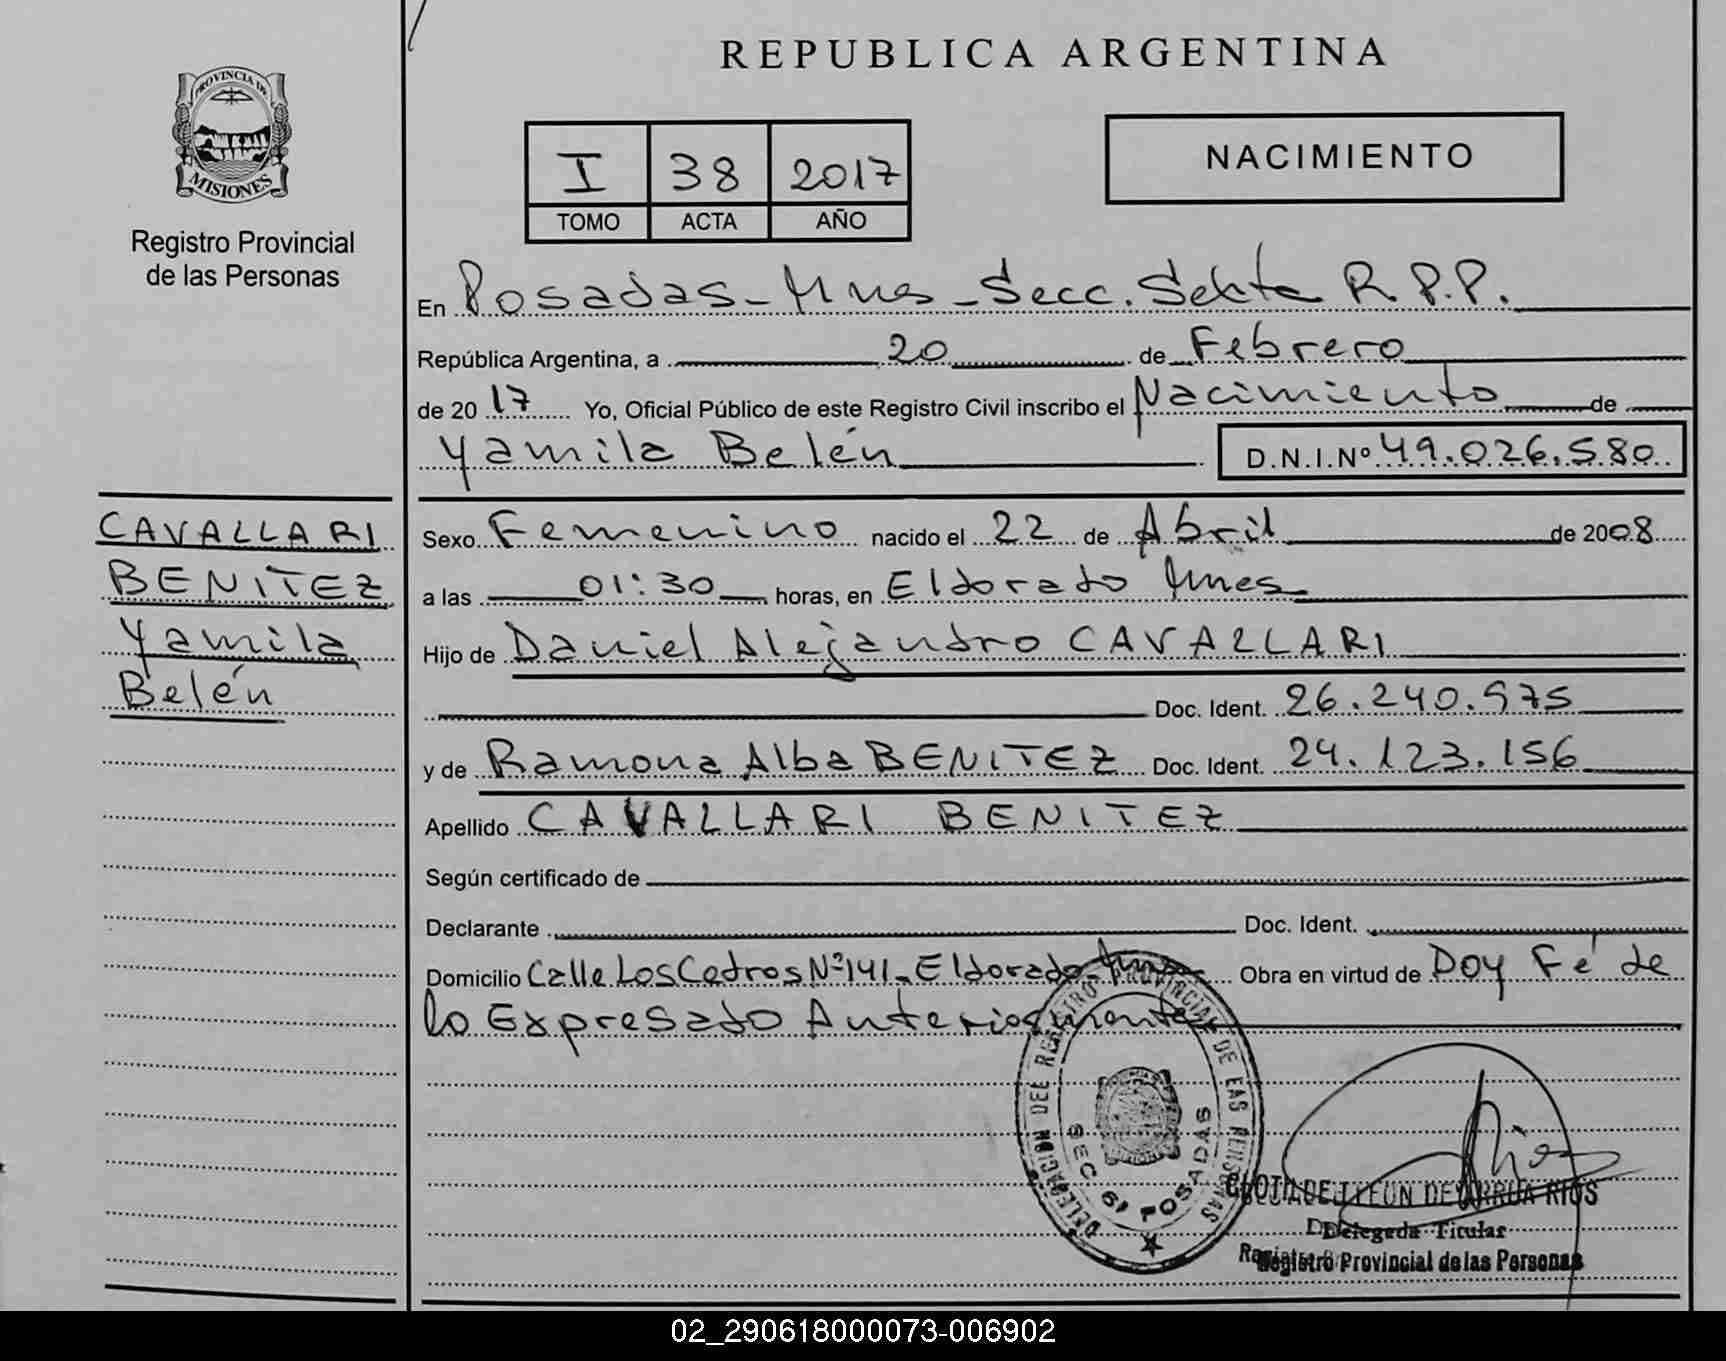 REPUBLICA ARGENTINA
PROVINCIA DE
MISIONES
Registro Provincial
de las Personas
I 38 2017
TOMO ACTA AÑO
NACIMIENTO
En Posadas - Mnes - Secc. Sexta R.P.P.
República Argentina, a 20 de Febrero
de 20 17 Yo, Oficial Público de este Registro Civil inscribo el Nacimiento de
Yamila Belén D.N.I.Nº 49.026.580
CAVALLARI
BENITEZ
Yamila
Belén
Sexo Femenino nacido el 22 de Abril de 2008
a las 01:30 horas, en Eldorado Mnes
Hijo de Daniel Alejandro CAVALLARI
Doc. Ident. 26.240.975
y de Ramona Alba BENITEZ Doc. Ident. 24.123.156
Apellido CAVALLARI BENITEZ
Según certificado de
Declarante Doc. Ident.
Domicilio Calle Los Cedros Nº 141 - Eldorado - Mnes Obra en virtud de Doy Fé de
lo Expresado Anteriormente
DELEGACION DEL REGISTRO PROVINCIAL DE LAS PERSONAS
SEC 6, POSADAS
RIOS
Delegada Titular
Registro Provincial de las Personas
02_290618000073-006902